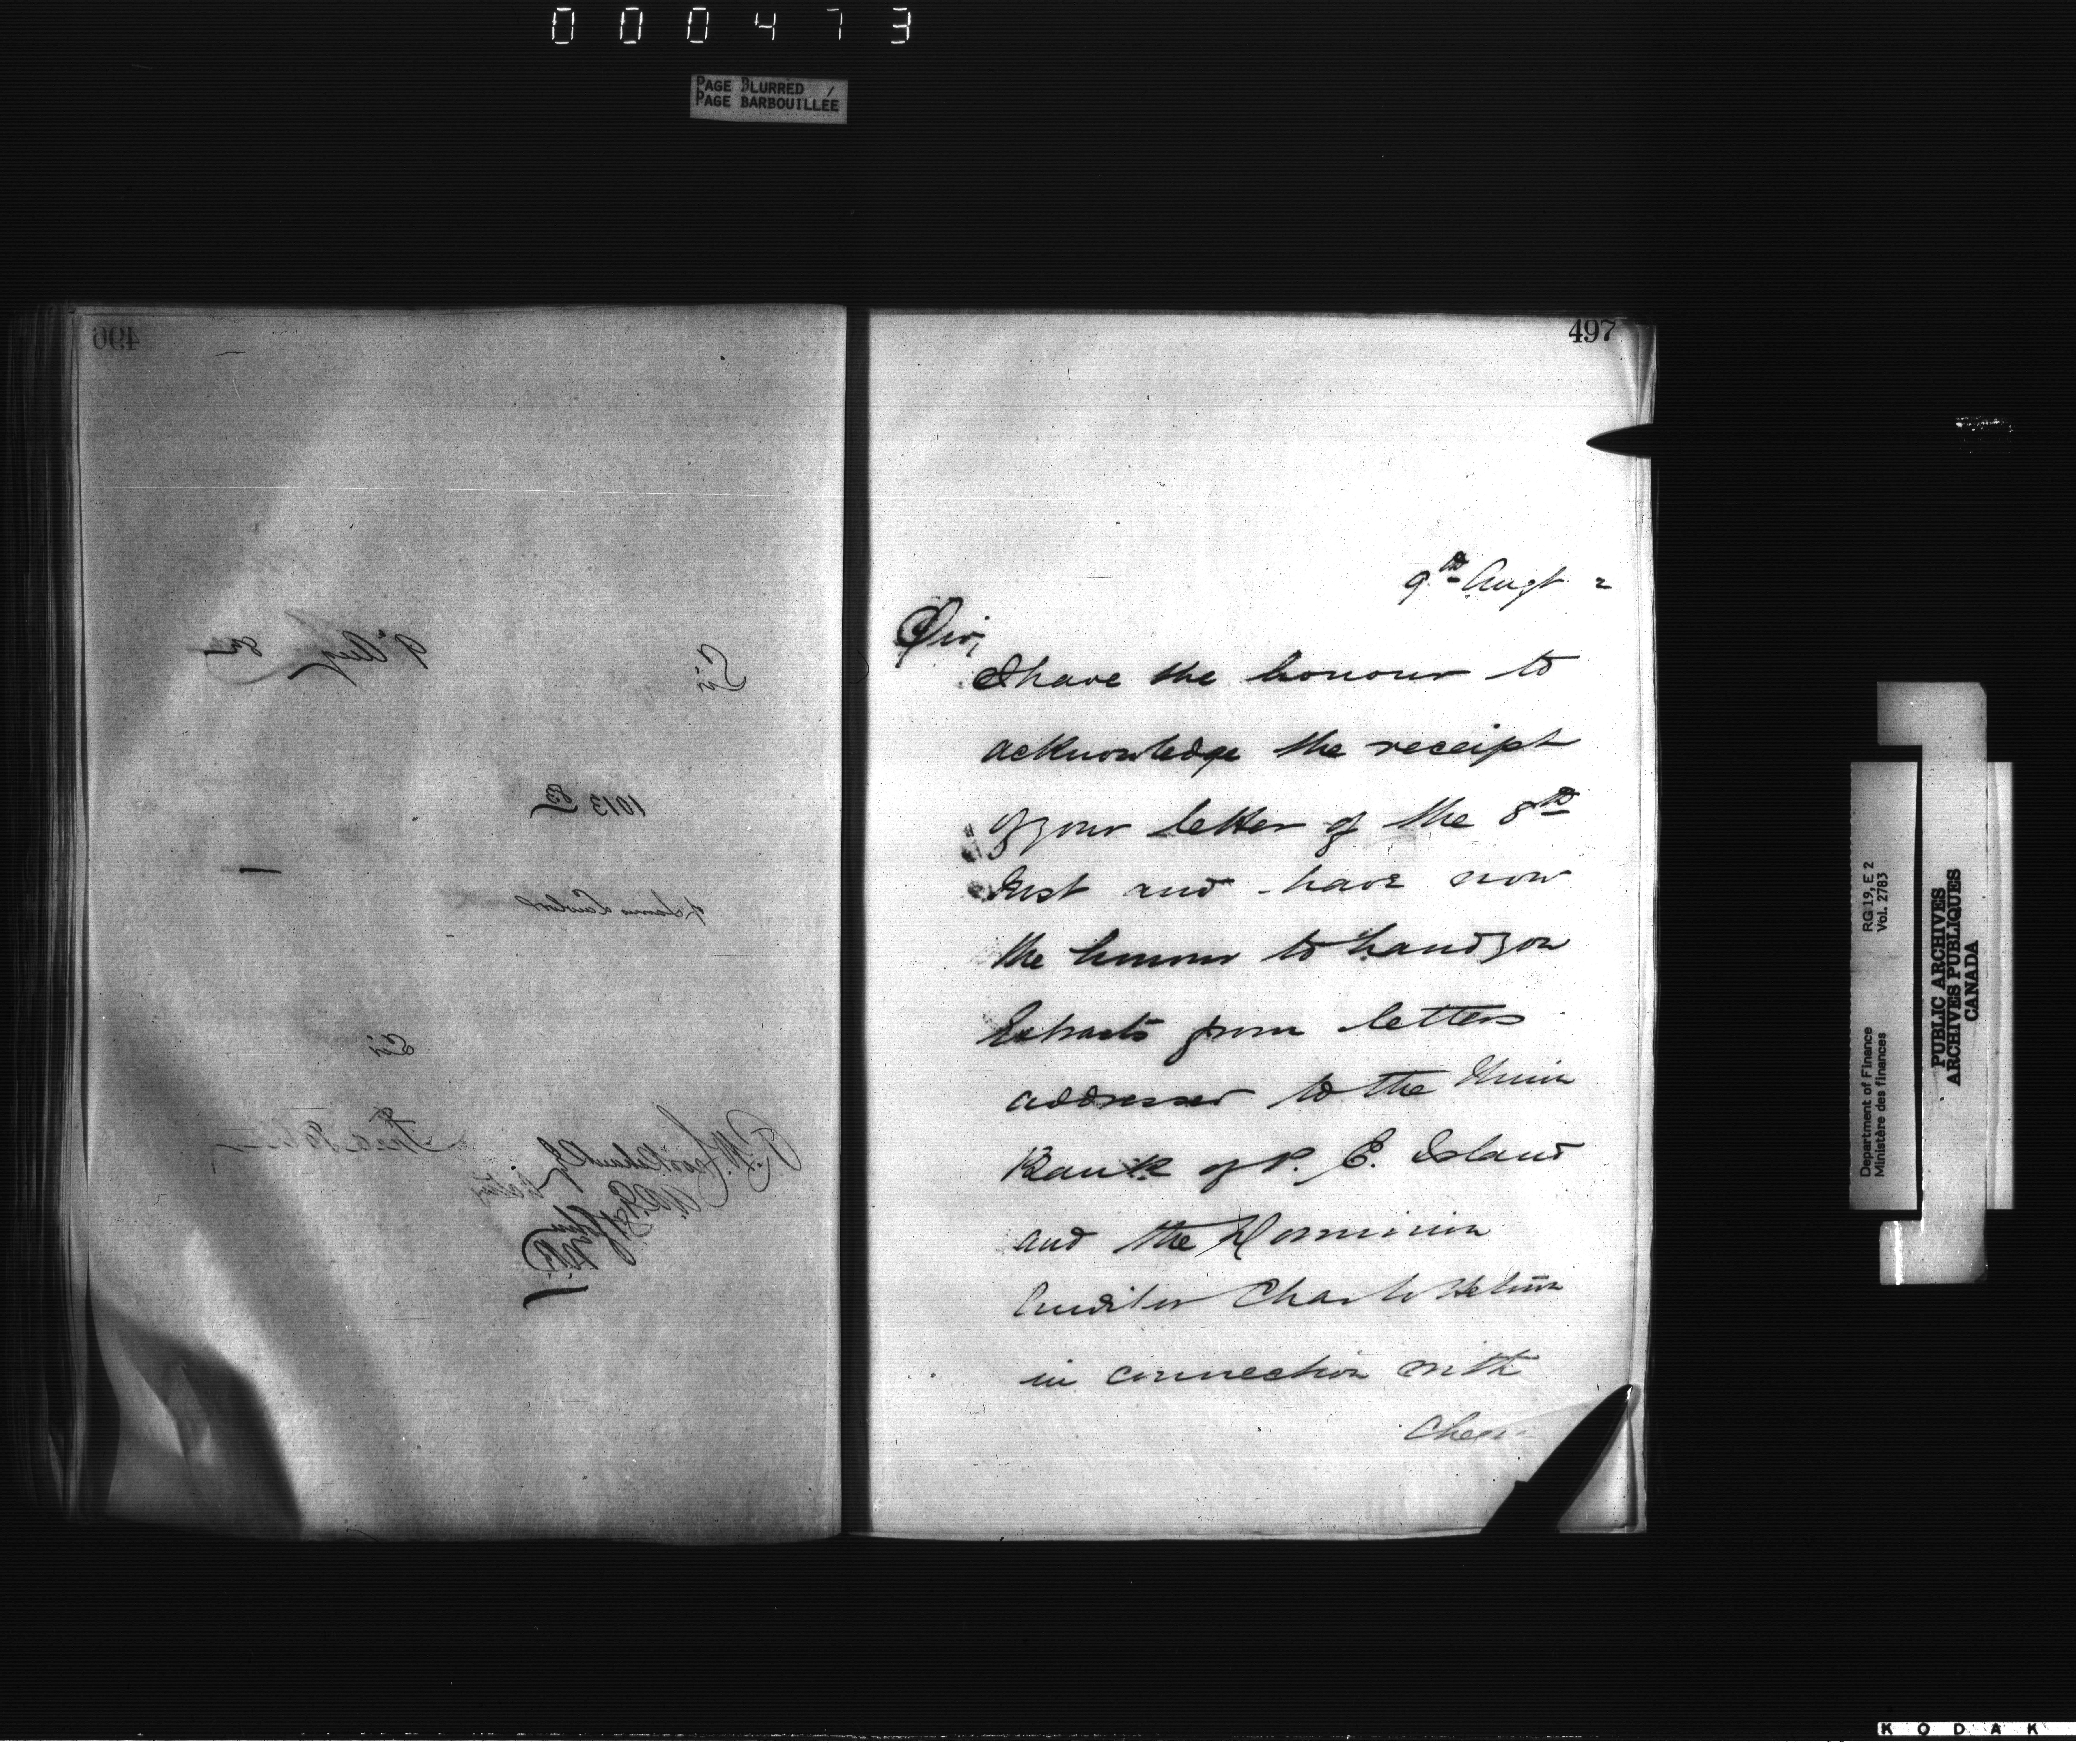 000473
PAGE BLURRED
PAGE BARBOUILLÉE
496
9 Aug 82
Sir
1013
Sir
497
9th Augt 2
Sir,
I have the honour to
acknowledge the receipt
of your letter of the 8th
Inst and have now
the honour to hand you
Extracts from letters
addressed to the Union
Bank of P. E. Island
and the Dominion
Auditor Charlottetown
in connection with
RG 19, E 2
Vol. 2783
Department of Finance
Ministère des finances
PUBLIC ARCHIVES
ARCHIVES PUBLIQUES
CANADA
KODAK